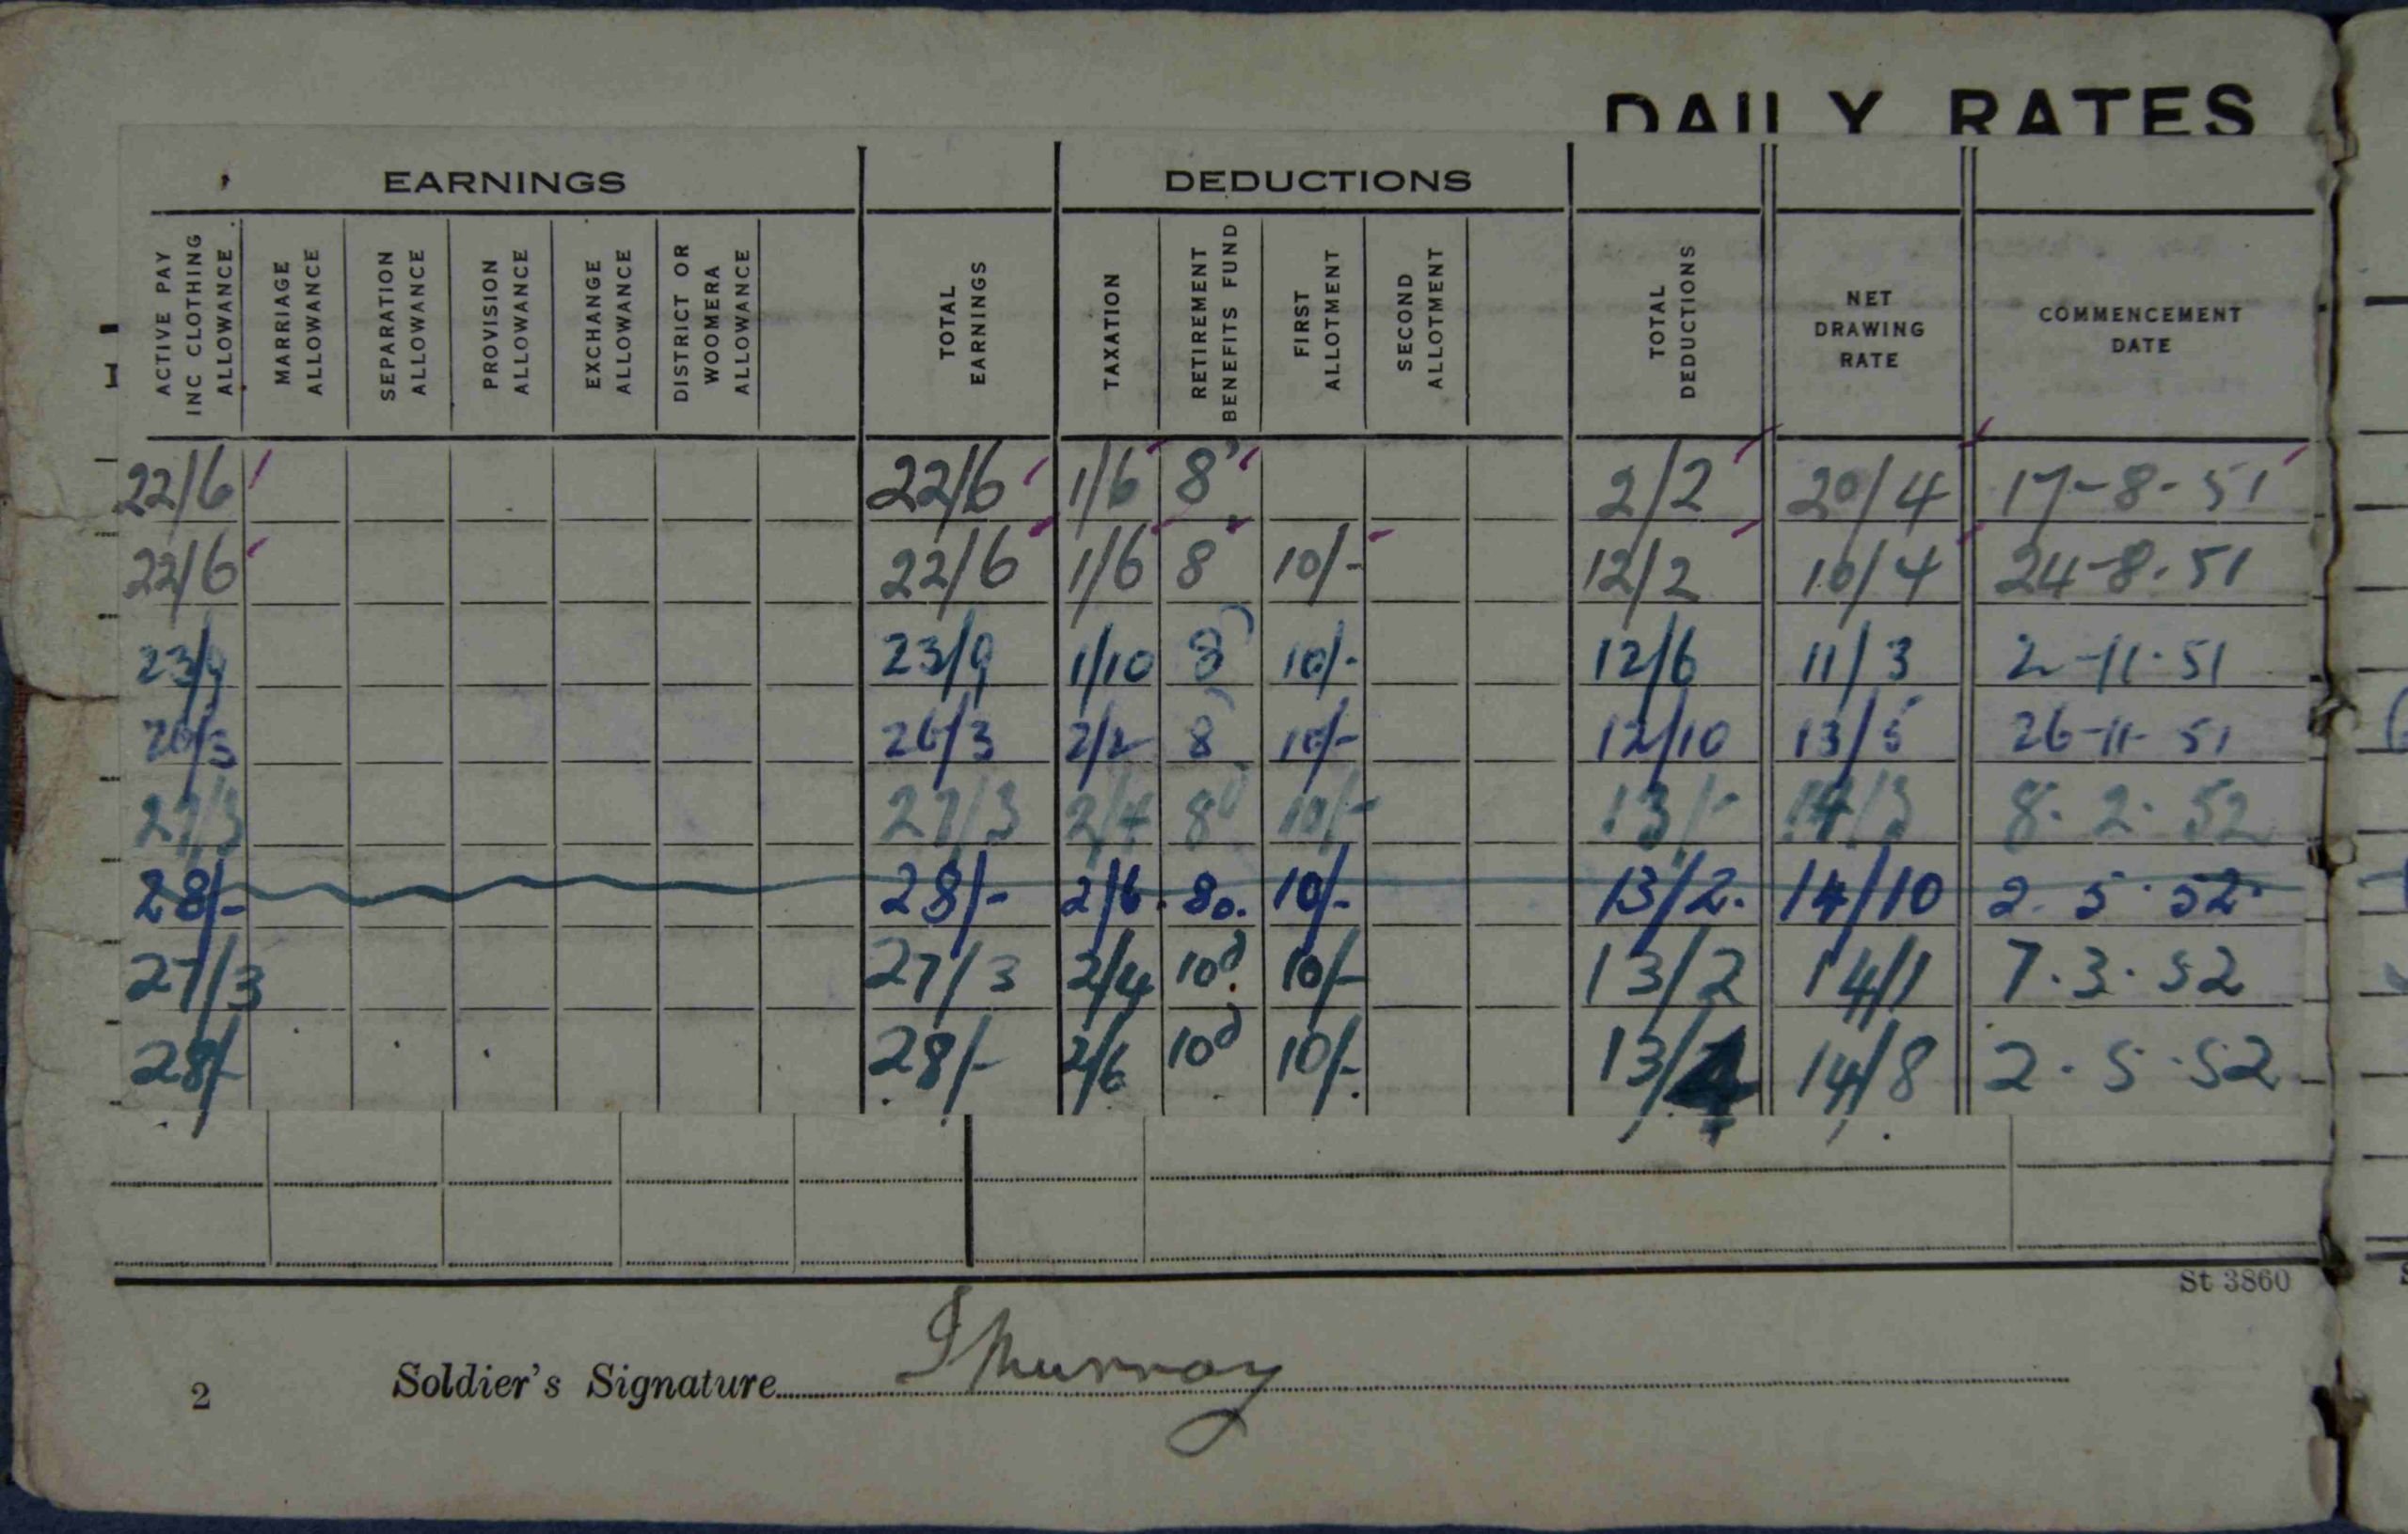 DAILY RATES
EARNINGS DEDUCTIONS
ACTIVE PAY INC CLOTHING ALLOWANCE MARRIAGE ALLOWANCE SEPARATION ALLOWANCE PROVISION ALLOWANCE EXCHANGE ALLOWANCE DISTRICT OR WOOMERA ALLOWANCE TOTAL EARNINGS TAXATION RETIREMENT BENEFITS FUND FIRST ALLOTMENT SECOND ALLOTMENT TOTAL DEDUCTIONS NET DRAWING RATE COMMENCEMENT DATE
22/6 22/6 1/6 8 2/2 20/4 17-8-51
22/6 22/6 1/6 8 10/- 12/2 10/4 24-8-51
23/9 23/9 1/10 8 10/- 12/6 11/3 2-11-51
26/3 26/3 2/2 8 10/- 12/10 13/5 26-11-51
27/3 27/3 2/4 8 10/- 13/- 14/3 8.2.52
28/- 28/- 2/6 8D. 10/- 13/2. 14/10 2.5.52
27/3 27/3 2/4 10d 10/- 13/2 14/1 7.3.52
28/- 28/- 2/6 10d 10/- 13/4 14/8 2.5.52
St 3860
2 Soldier's Signature J Murray